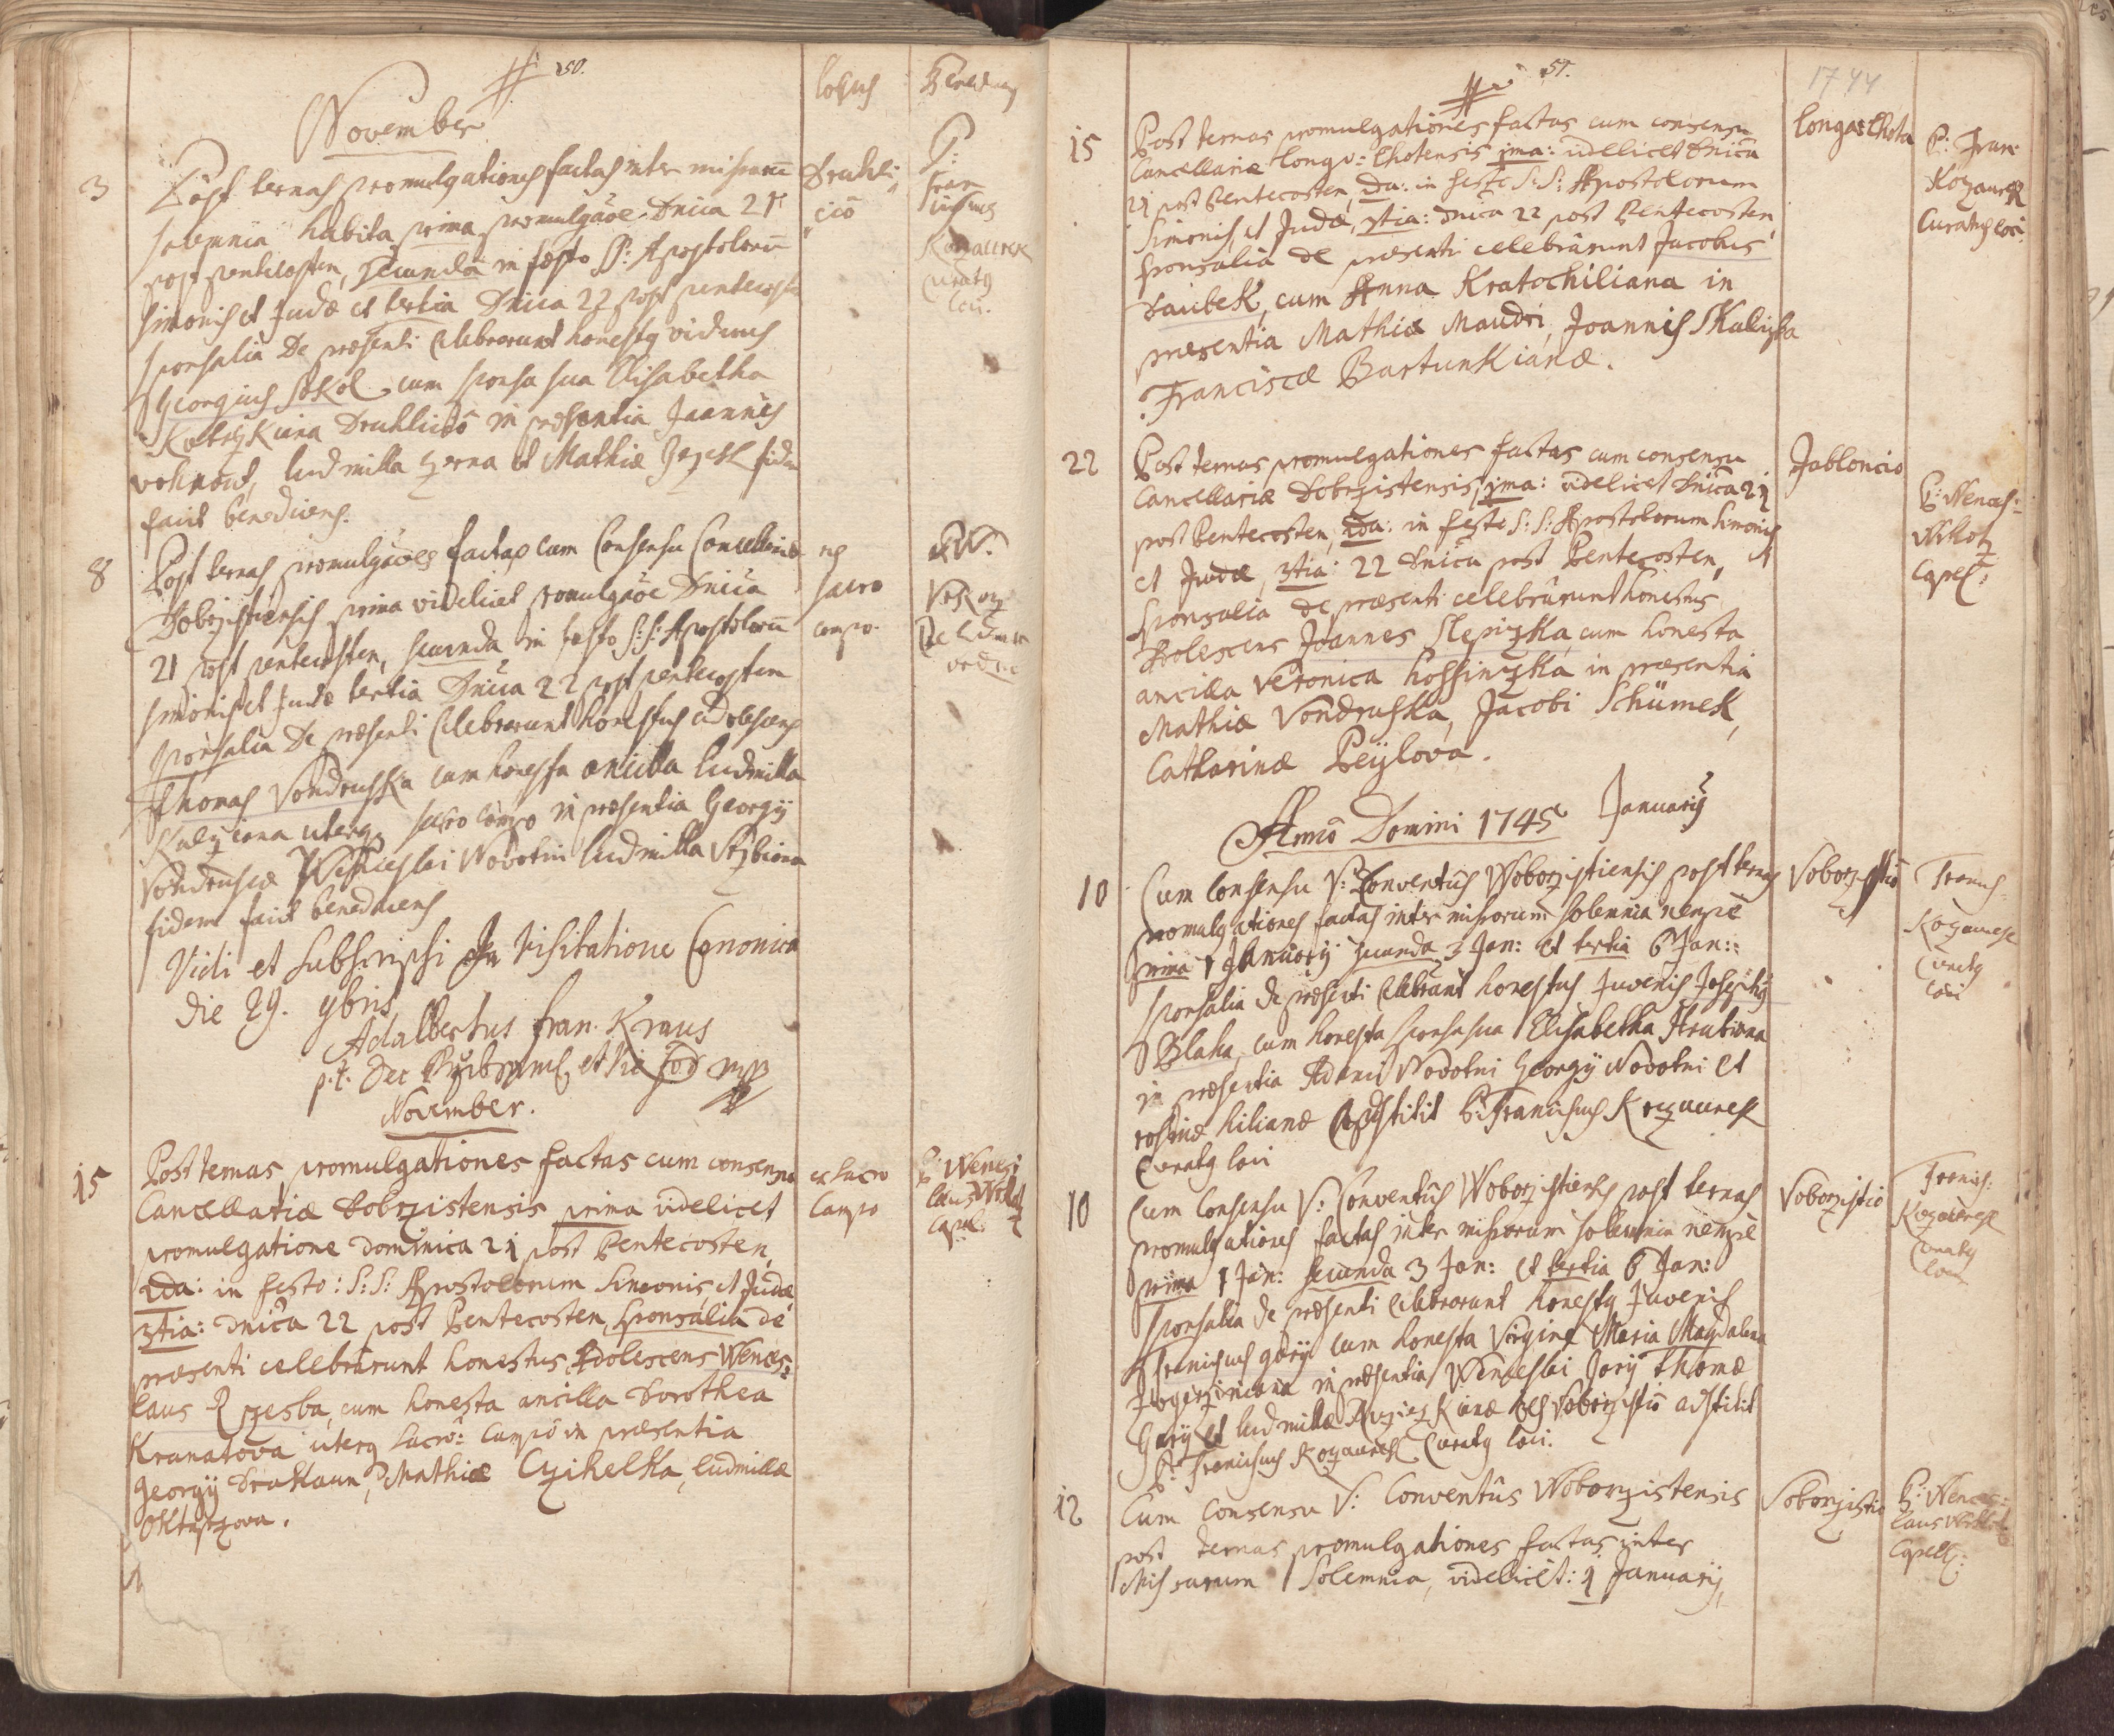 50.
November
Locus
3
Post ternas promulgationes factas inter missarū
solemnia habita prima promulgaōe Dnica 21
post pentecosten, secunda in festo SS: Apostolorū
Simonis et Judæ et tertia Dnica 22 post pentecosten
sponsalia De præsenti celebrarunt honestus viduus
Georgius Sokol cum sponsa sua Elisabetha
Druhlicio in præsentia Joannis
Ludmilla et Mathiæ fidem
facit benedicens.
Druhli
cio
P:
Fran
ciscus
Kozaurek
Curatus
loci.
8
Post ternas promulgaōes factas cum Consensu Concellariæ
Dobrzistiensis prima videlicet promulgaōe Dnica
21 post pentecosten, secunda in festo S:S: Apostolorū
Simonis et Judæ tertia Dnica 22 post pentecosten
sponsalia De præsenti Celebrarunt honestus adolescens
Thomas Vondruska cum honesta ancilla Ludmilla
uterq sacro campo in præsentia Georgÿ
Vondruscæ Wenceslai Novotni Ludmilla
fidem facit benedicens
ex
sacro
campo.
Vidi et subscripsi in Visitatione Canonica
die 29. 9bris
Adalbertus Fran. Kraus
p.t. Dec et mp
November.
15
Post ternas promulgationes factas cum consensu
Cancellariæ Dobrzistensis prima videlicet
promulgatione Dominica 21 post Pentecosten,
2da: in festo: S:S: Apostolorum Simonis, et Judæ
3tia: Dnica 22 post Pentecosten, Sponsalia de
præsenti celebrârunt honestus Adolescens Wences:
laus Rzesba, cum honesta ancilla Dorothea
Kranatova uterq sacro: campo in præsentia
Georgÿ Drakaun, Mathiæ Czihelka, Ludmillæ
ex sacro
Campo
P: Wences
laus
Capel:
51.
1744
15
Post ternas promulgationes factas cum consensu
Cancellariæ Longo: Lhotensis 1ma: videlicet Dnica
21 post Pentecosten, 2da: in festo S:S: Apostolorum
Simonis, et Judæ, 3tia: Dnica 22 post Pentecosten,
sponsalia de præsenti celebrârunt Jacobus
Daubek, cum Anna Kratochiliana in
præsentia Mathiæ Maudri, Joannis Skaliska
Franciscæ Bartunkianæ.
Longa Lhota
P: Fran:
Kozaurek
Curatus loci.
22
Post ternas promulgationes factas cum consensu
Cancellariæ Dobrzistensis, 1ma: videlicet Dnica 21
post Pentecosten, 2da: in festo S:S: Apostolorum Simonis
et Judæ, 3tia: 22 Dnica post Pentecosten,
Sponsalia de præsenti celebrârunt honestus
Adolescens Joannes Slepizka, cum honesta
ancilla Veronica Hossinzka in præsentia
Mathiæ Vondruska, Jacobi Schümek,
Catharinæ Peÿlova.
Jabloncio
P: Wences:
Capel:
Anno Domini 1745 Januarÿ
10
Cum Consensu V: Conventûs Woborzistiensis post ternas
promulgationes factas inter missarum solemnia nempe
prima 1 Januarÿ secunda 3 Jan: et tertia 6 Jan:
sponsalia de præsenti celebrârunt honestus Juvenis Josephus
Blaha, cum honesta sponsa sua Elisabetha Hrubiana
in præsentia Adami Novotni Georgÿ Novotni et
rosinæ Kilianæ Adstitit P: Franciscus Kozaurek
Curatus loci
Voborzistio
Francis:
Kozaurek
Curatus
loci
10
Cum Consensu V: Conventûs Woborzistiensis post ternas
promulgationes factas inter missarum solemnia nempe
prima 1 Jan: secunda 3 Jan: et tertia 6 Jan:
sponsalia de præsenti celebrarunt honestus Juvenis
Franciscus Görÿ cum honesta Virgine Maria Magdalena
in præsentia Wenceslai Jorÿ Thomæ
Görÿ et Ludmillæ Voborzistio adstitit
P: Franciscus Kozaurek Curatus loci.
Voborzistio
Francis:
Kozaurek
Curatus
loci
12
Cum Consensu V: Conventûs Woborzistensis
post ternas promulgationes factas inter
Missarum Solemnia, videlicet: 1 Januarÿ,
Voborzistio
P: Wences:
laus
Capell: